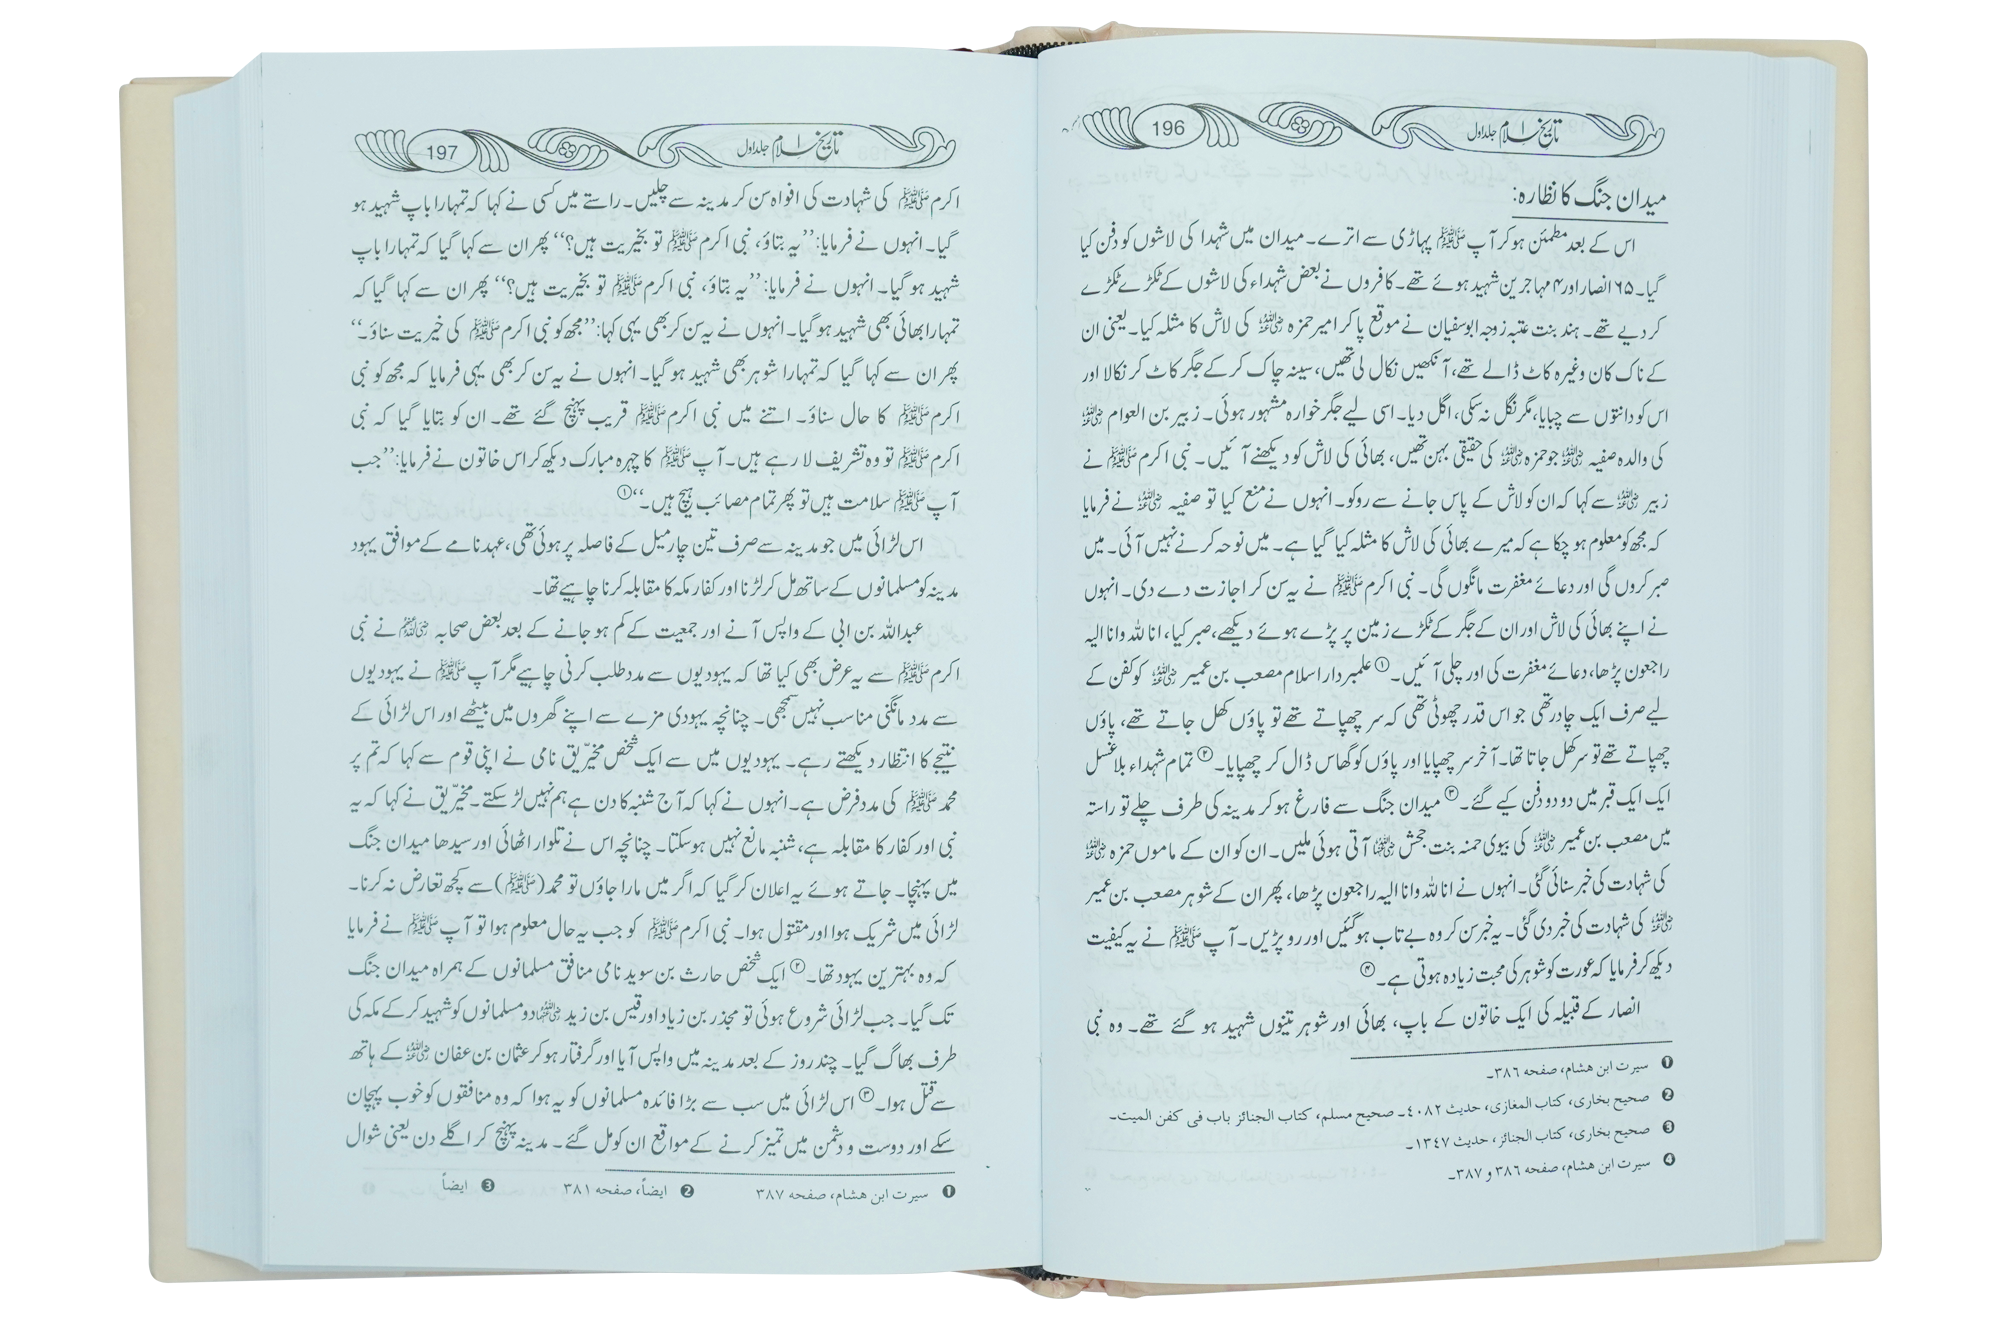 تاریخ اسلام جلد اول
196
میدان جنگ کا نظارہ:
اس کے بعد مطمئن ہو کر آپ ﷺ پہاڑی سے اترے۔ میدان میں شہدا کی لاشوں کو دفن کیا
گیا۔ ۶۵ انصار اور ۴ مہاجرین شہید ہوئے تھے۔ کافروں نے بعض شہداء کی لاشوں کے ٹکڑے ٹکڑے
کر دیے تھے۔ ہند بنت عتبہ زوجہ ابوسفیان نے موقع پا کر امیر حمزہ رضی اللہ عنہ کی لاش کا مثلہ کیا۔ یعنی ان
کے ناک کان وغیرہ کاٹ ڈالے تھے، آنکھیں نکال لی تھیں، سینہ چاک کر کے جگر کاٹ کر نکالا اور
اس کو دانتوں سے چبایا، مگر نگل نہ سکی، اگل دیا۔ اسی لیے جگر خوارہ مشہور ہوئی۔ زبیر بن العوام رضی اللہ عنہ
کی والدہ صفیہ رضی اللہ عنہ جو حمزہ رضی اللہ عنہ کی حقیقی بہن تھیں، بھائی کی لاش کو دیکھنے آئیں۔ نبی اکرم ﷺ نے
زبیر رضی اللہ عنہ سے کہا کہ ان کو لاش کے پاس جانے سے روکو۔ انہوں نے منع کیا تو صفیہ رضی اللہ عنہ نے فرمایا
کہ مجھ کو معلوم ہو چکا ہے کہ میرے بھائی کی لاش کا مثلہ کیا گیا ہے۔ میں نوحہ کرنے نہیں آئی۔ میں
صبر کروں گی اور دعائے مغفرت مانگوں گی۔ نبی اکرم ﷺ نے یہ سن کر اجازت دے دی۔ انہوں
نے اپنے بھائی کی لاش اور ان کے جگر کے ٹکڑے زمین پر پڑے ہوئے دیکھے، صبر کیا، انا للہ وانا الیہ
راجعون پڑھا، دعائے مغفرت کی اور چلی آئیں۔① علمبردار اسلام مصعب بن عمیر رضی اللہ عنہ کو کفن کے
لیے صرف ایک چادر تھی جو اس قدر چھوٹی تھی کہ سر چھپاتے تھے تو پاؤں کھل جاتے تھے، پاؤں
چھپاتے تھے تو سر کھل جاتا تھا۔ آخر سر چھپایا اور پاؤں کو گھاس ڈال کر چھپایا۔② تمام شہداء بلا غسل
ایک ایک قبر میں دو دو دفن کیے گئے۔③ میدان جنگ سے فارغ ہو کر مدینہ کی طرف چلے تو راستہ
میں مصعب بن عمیر رضی اللہ عنہ کی بیوی حمنہ بنت جحش رضی اللہ عنہا آتی ہوئی ملیں۔ ان کو ان کے ماموں حمزہ رضی اللہ عنہ
کی شہادت کی خبر سنائی گئی۔ انہوں نے انا للہ وانا الیہ راجعون پڑھا، پھر ان کے شوہر مصعب بن عمیر
رضی اللہ عنہ کی شہادت کی خبر دی گئی۔ یہ خبر سن کر وہ بے تاب ہو گئیں اور رو پڑیں۔ آپ ﷺ نے یہ کیفیت
دیکھ کر فرمایا کہ عورت کو شوہر کی محبت زیادہ ہوتی ہے۔④
انصار کے قبیلہ کی ایک خاتون کے باپ، بھائی اور شوہر تینوں شہید ہو گئے تھے۔ وہ نبی
❶ سیرت ابن ہشام، صفحہ ۳۸۶۔
❷ صحیح بخاری، کتاب المغازی، حدیث ۴۰۸۲۔ صحیح مسلم، کتاب الجنائز باب فی کفن المیت۔
❸ صحیح بخاری، کتاب الجنائز، حدیث ۱۳۴۷۔
❹ سیرت ابن ہشام، صفحہ ۳۸۶ و ۳۸۷۔
تاریخ اسلام جلد اول
197
اکرم ﷺ کی شہادت کی افواہ سن کر مدینہ سے چلیں۔ راستے میں کسی نے کہا کہ تمہارا باپ شہید ہو
گیا۔ انہوں نے فرمایا: ’’یہ بتاؤ، نبی اکرم ﷺ تو بخیریت ہیں؟‘‘ پھر ان سے کہا گیا کہ تمہارا باپ
شہید ہو گیا۔ انہوں نے فرمایا: ’’یہ بتاؤ، نبی اکرم ﷺ تو بخیریت ہیں؟‘‘ پھر ان سے کہا گیا کہ
تمہارا بھائی بھی شہید ہو گیا۔ انہوں نے یہ سن کر بھی یہی کہا: ’’مجھ کو نبی اکرم ﷺ کی خیریت سناؤ۔‘‘
پھر ان سے کہا گیا کہ تمہارا شوہر بھی شہید ہو گیا۔ انہوں نے یہ سن کر بھی یہی فرمایا کہ مجھ کو نبی
اکرم ﷺ کا حال سناؤ۔ اتنے میں نبی اکرم ﷺ قریب پہنچ گئے تھے۔ ان کو بتایا گیا کہ نبی
اکرم ﷺ تو وہ تشریف لا رہے ہیں۔ آپ ﷺ کا چہرہ مبارک دیکھ کر اس خاتون نے فرمایا: ’’جب
آپ ﷺ سلامت ہیں تو پھر تمام مصائب ہیچ ہیں۔‘‘①
اس لڑائی میں جو مدینہ سے صرف تین چار میل کے فاصلہ پر ہوئی تھی، عہد نامے کے موافق یہود
مدینہ کو مسلمانوں کے ساتھ مل کر لڑنا اور کفار مکہ کا مقابلہ کرنا چاہیے تھا۔
عبداللہ بن ابی کے واپس آنے اور جمعیت کے کم ہو جانے کے بعد بعض صحابہ رضی اللہ عنہم نے نبی
اکرم ﷺ سے یہ عرض بھی کیا تھا کہ یہودیوں سے مدد طلب کرنی چاہیے مگر آپ ﷺ نے یہودیوں
سے مدد مانگنی مناسب نہیں سمجھی۔ چنانچہ یہودی مزے سے اپنے گھروں میں بیٹھے اور اس لڑائی کے
نتیجے کا انتظار دیکھتے رہے۔ یہودیوں میں سے ایک شخص مخیریق نامی نے اپنی قوم سے کہا کہ تم پر
محمد ﷺ کی مدد فرض ہے۔ انہوں نے کہا کہ آج شنبہ کا دن ہے ہم نہیں لڑ سکتے۔ مخیریق نے کہا کہ یہ
نبی اور کفار کا مقابلہ ہے، شنبہ مانع نہیں ہو سکتا۔ چنانچہ اس نے تلوار اٹھائی اور سیدھا میدان جنگ
میں پہنچا۔ جاتے ہوئے یہ اعلان کر گیا کہ اگر میں مارا جاؤں تو محمد (ﷺ) سے کچھ تعارض نہ کرنا۔
لڑائی میں شریک ہوا اور مقتول ہوا۔ نبی اکرم ﷺ کو جب یہ حال معلوم ہوا تو آپ ﷺ نے فرمایا
کہ وہ بہترین یہود تھا۔② ایک شخص حارث بن سوید نامی منافق مسلمانوں کے ہمراہ میدان جنگ
تک گیا۔ جب لڑائی شروع ہوئی تو مجذر بن زیاد اور قیس بن زید رضی اللہ عنہما دو مسلمانوں کو شہید کر کے مکہ کی
طرف بھاگ گیا۔ چند روز کے بعد مدینہ میں واپس آیا اور گرفتار ہو کر عثمان بن عفان رضی اللہ عنہ کے ہاتھ
سے قتل ہوا۔③ اس لڑائی میں سب سے بڑا فائدہ مسلمانوں کو یہ ہوا کہ وہ منافقوں کو خوب پہچان
سکے اور دوست و دشمن میں تمیز کرنے کے مواقع ان کو مل گئے۔ مدینہ پہنچ کر اگلے دن یعنی شوال
❶ سیرت ابن ہشام، صفحہ ۳۸۷ ❷ ایضاً، صفحہ ۳۸۱ ❸ ایضاً